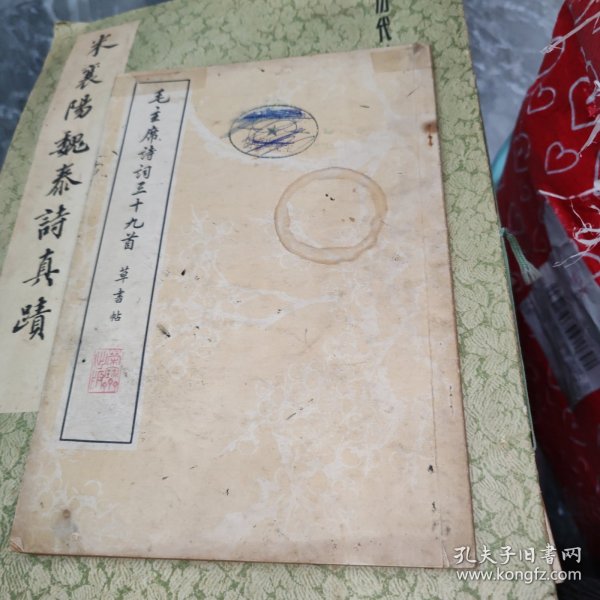 米襄陽魏泰詩真蹟
毛主席诗词三十九首 草书帖
历代
孔夫子旧书网
www.kongfz.com